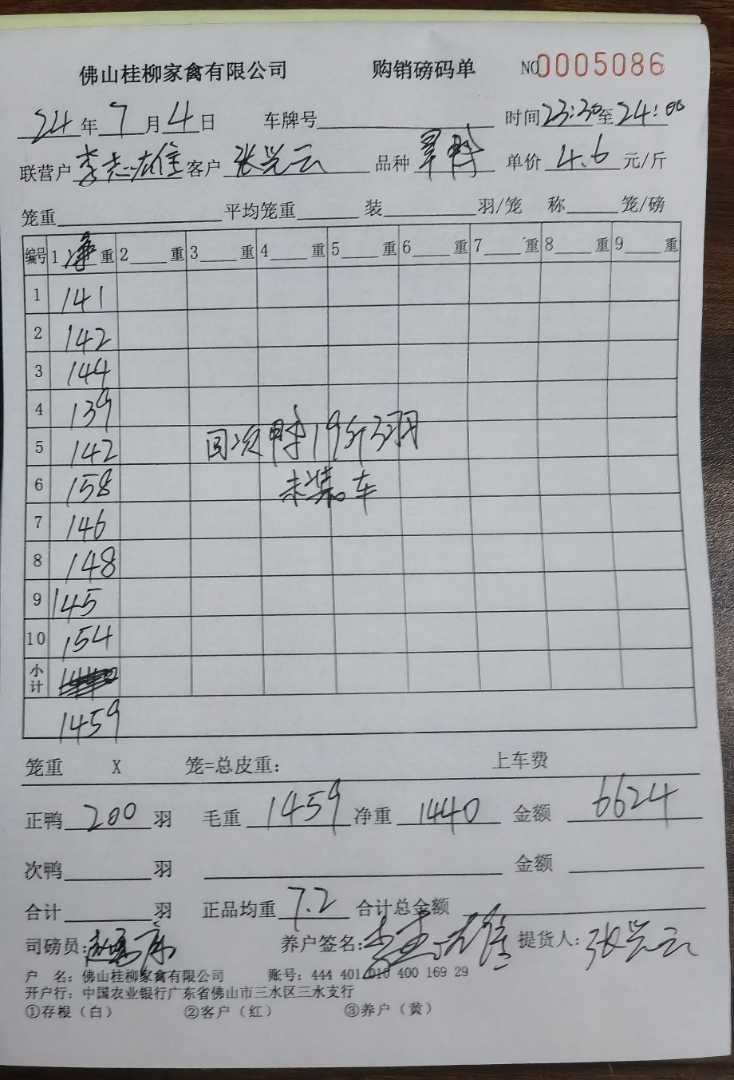 佛山桂柳家禽有限公司 购销磅码单 NO0005086
24年7月4日 车牌号 时间23:30至24:00
联营户李志雄客户张兴云 品种 单价4.6元/斤
笼重 平均笼重 装 羽/笼 称 笼/磅
编号 1净重 2 重 3 重 4 重 5 重 6 重 7 重 8 重 9 重
1 141
2 142
3 144
4 139
5 142
6 158
7 146
8 148
9 145
10 154
回次鸭19斤3羽
未装车
小计
1459
笼重 X 笼=总皮重: 上车费
正鸭200羽 毛重1459净重1440 金额6624
次鸭 羽 金额
合计 羽 正品均重7.2合计总金额
司磅员: 养户签名:李志雄 提货人:张兴云
户 名:佛山桂柳家禽有限公司 账号:444 401 010 400 169 29
开户行:中国农业银行广东省佛山市三水区三水支行
①存根(白) ②客户(红) ③养户(黄)